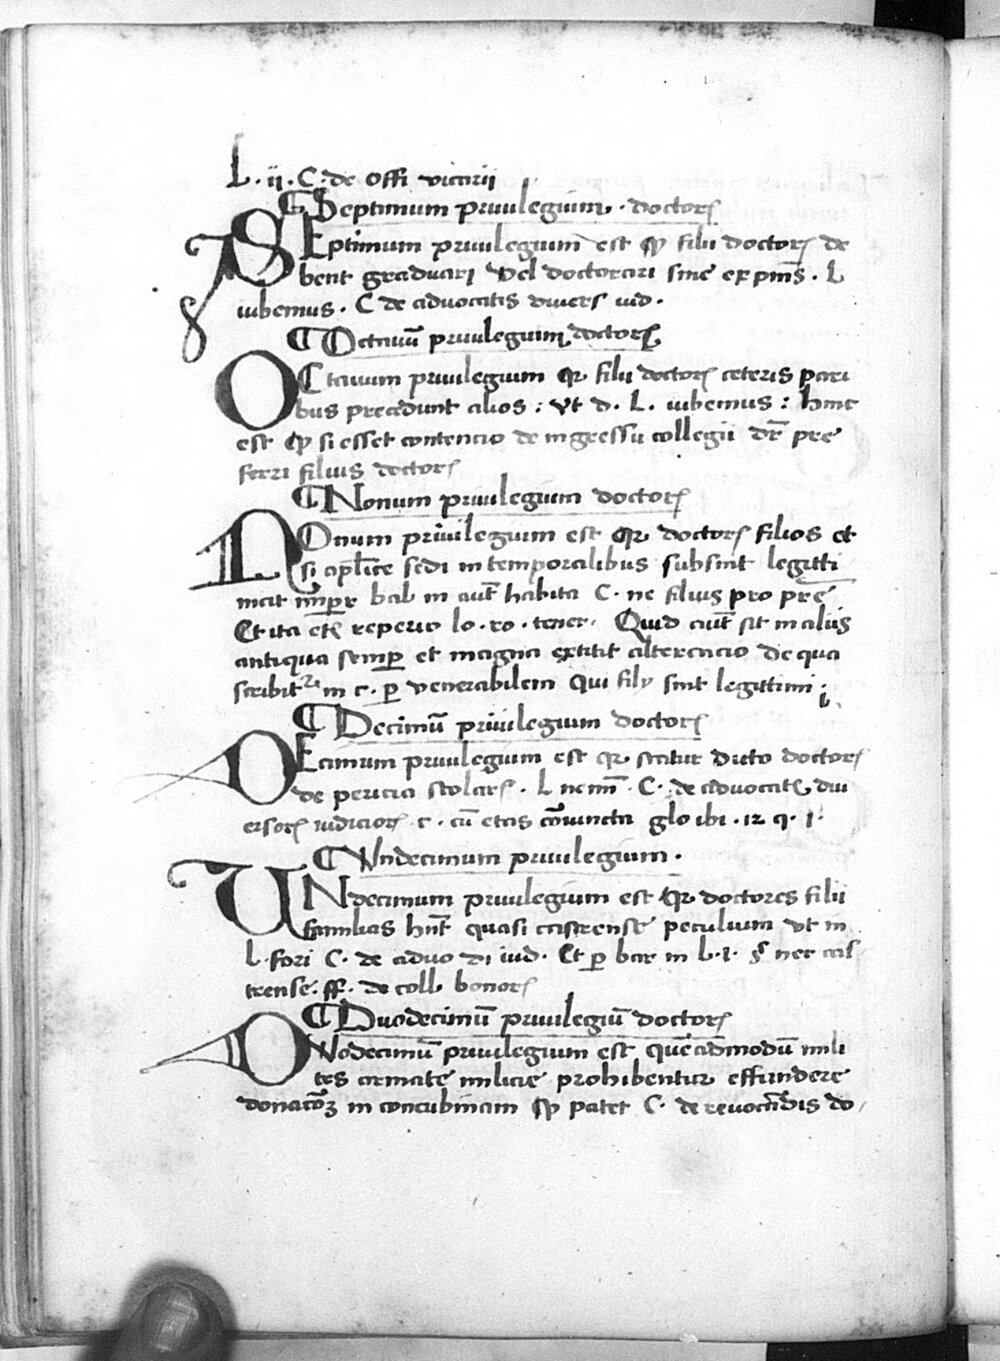 L. ii. C. de offi vicarii
Septimum priuilegium. doctor
SEptimum priuilegium est filii doctor de
bent graduari vel doctorari sine expens. L
iubemus. C de aduocatis divers iud.
Octauũ priuilegium doctor
OCtauum priuilegium filii doctor ceteris pari
bus precedunt alios : vt d. L. iubemus : hinc
est si esset contencio de ingressu collegii dr̃ pre
ferri filius doctor
Nonum priuilegium doctor
NOnum priuilegium est doctor filios et
si aplice sedi in temporalibus subsint legitti
mat bal in aut̃ habita C. ne filius pro pre
Et ita reperio lo. ro. tener. Quid aut̃ sit in aliis
antiqua semp et magna extitit altercacio de qua
scribit in c. p venerabilem Qui filij sint legittimi
Decimũ priuilegium doctor
DEcimum priuilegium est statur dicto doctor
de pericia scolar. L nemĩ. C. de aduocat diu
ersor iudicior c. cũ etas glo ibi. 12 q. 1.
Vndecimum priuilegium.
UNdecimum priuilegium est doctores filii
familias hnt̃ quasi castrense peculium vt in
L. fori C. de aduo di iud. Et p bar in L. 1. § nec cas
trense. ff. de coll bonor
Duodecimũ priuilegiũ doctor
DVodecimũ priuilegium est quẽadmodũ mili
tes armate milicie prohibentur effundere
in concubinam patet C. de do